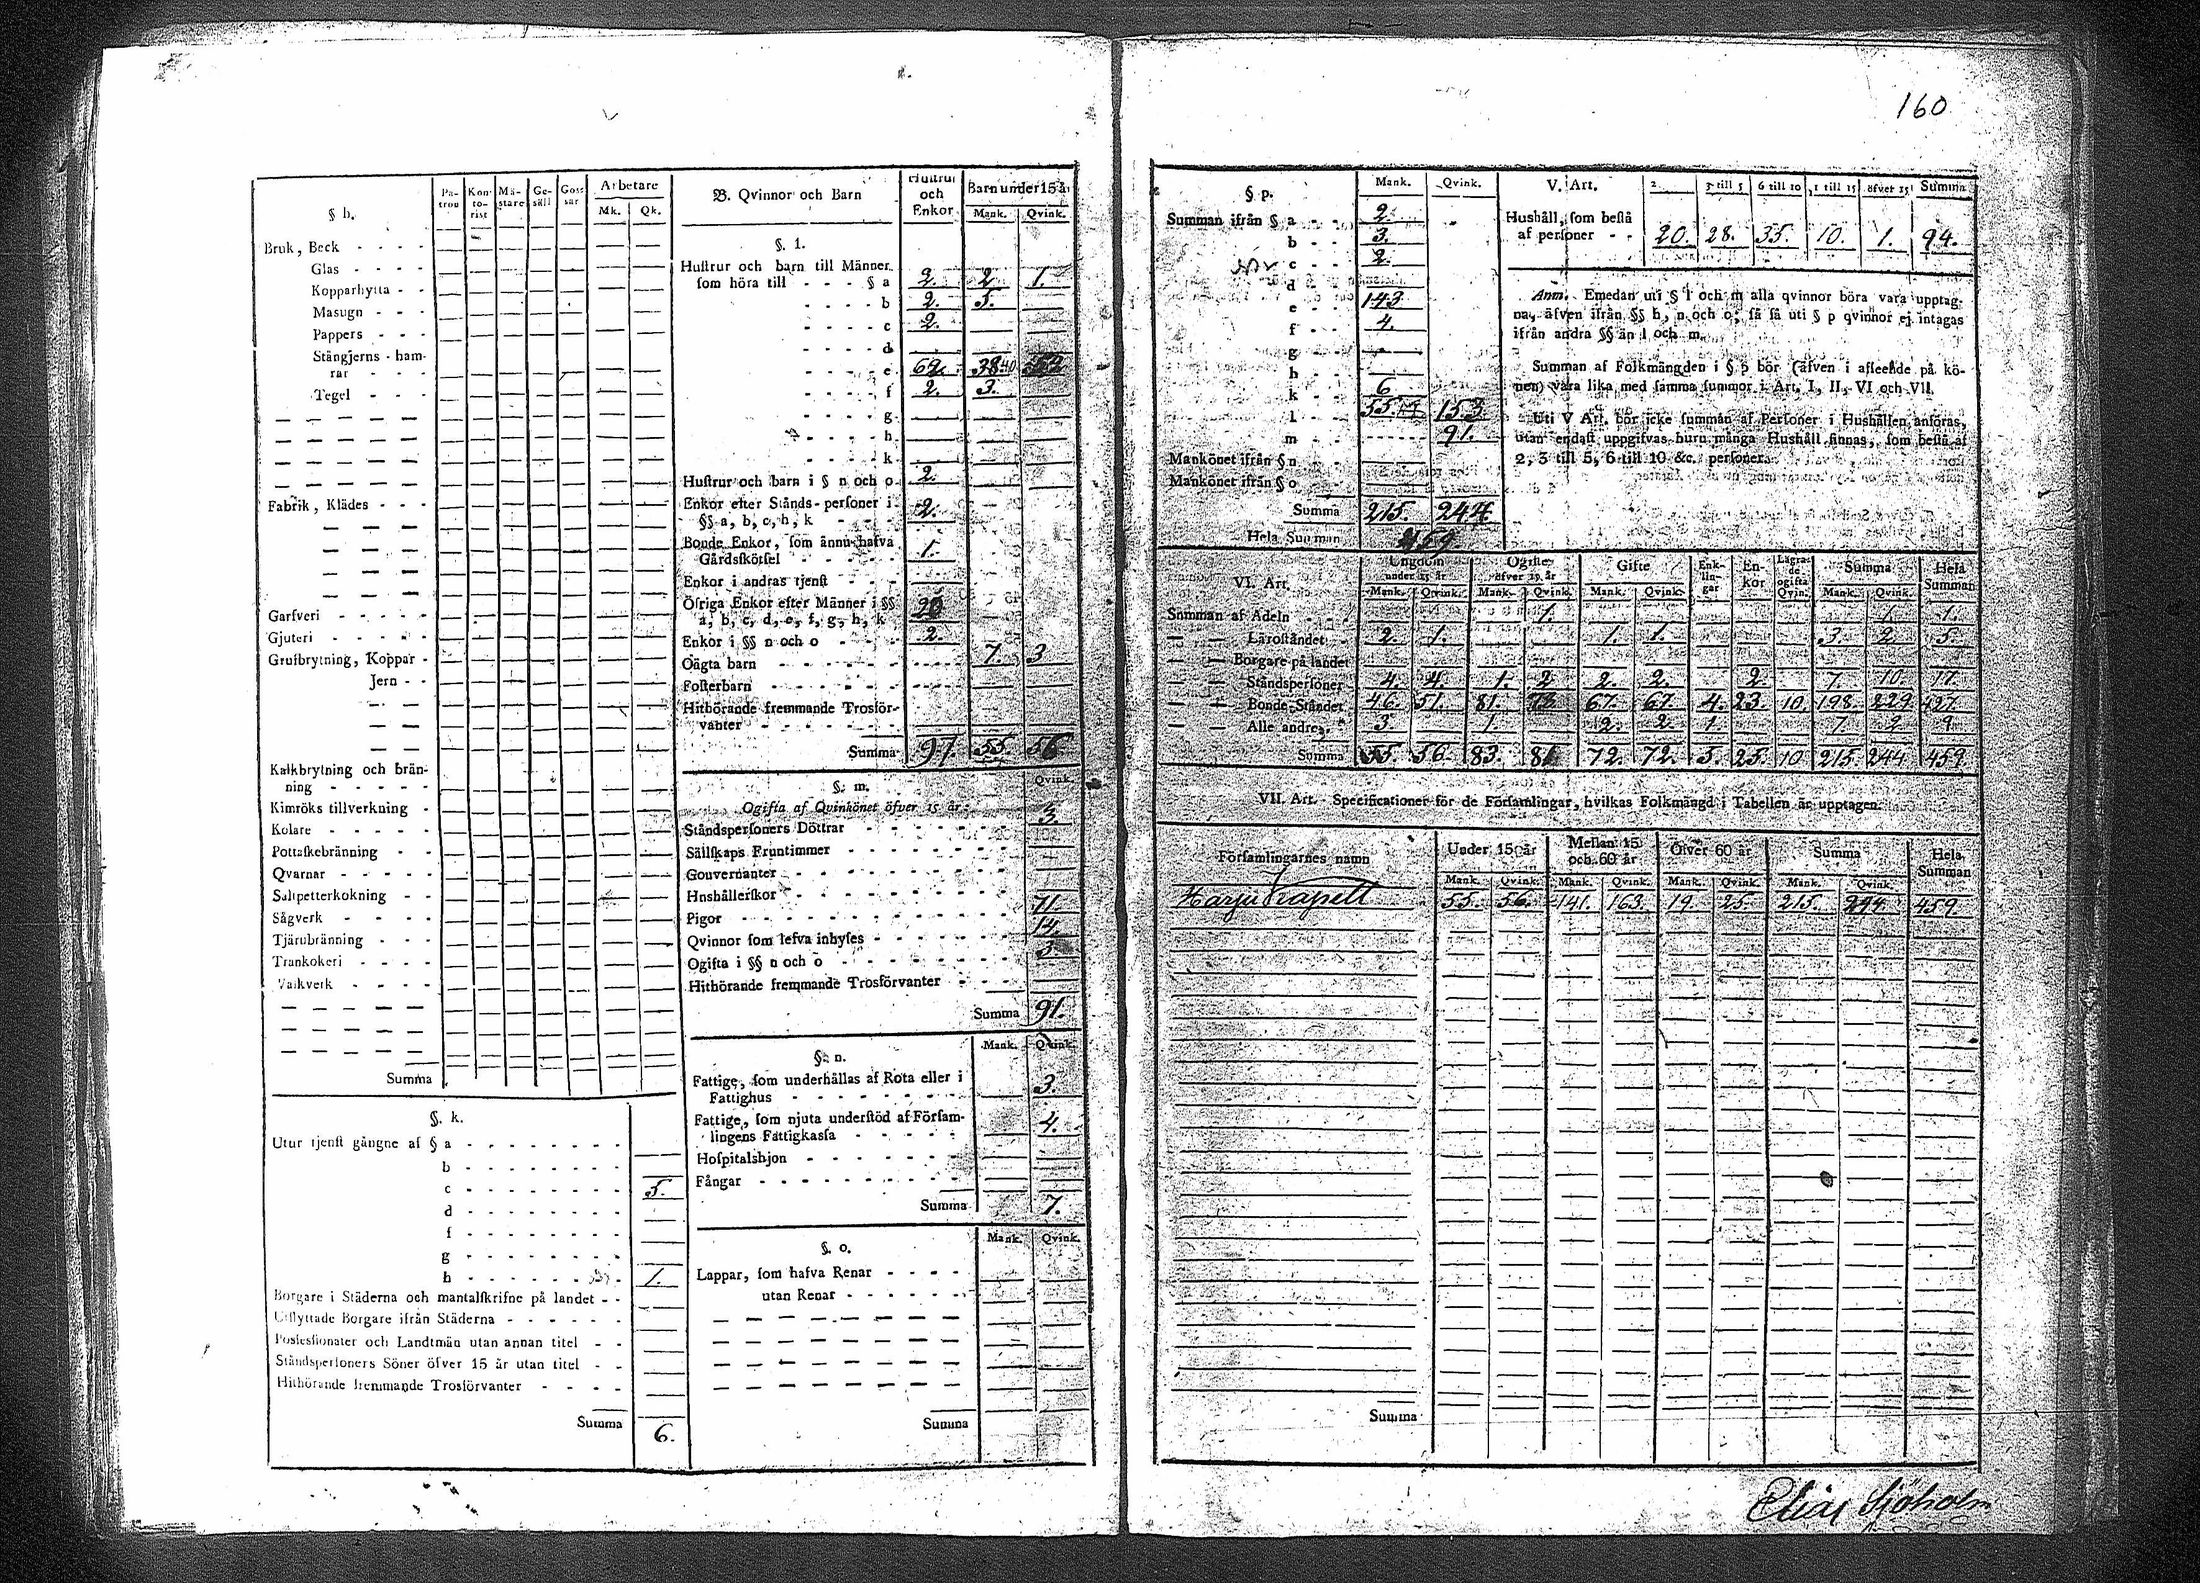 160
§ h.
Pa-tron Kon-to-rist Mä-stare Ge-säll Gos-sar Arbetare Mk. Qk.
Bruk, Beck - - - -
Glas - - - -
Kopparhytta - -
Masugn - - -
Pappers - - -
Stångjerns-ham-
rar - - -
Tegel - - -
Fabrik, Klädes - - -
Garfveri - - - -
Gjuteri - - - -
Grufbrytning, Koppar -
Jern - -
Kalkbrytning och brän-
ning - - - -
Kimröks tillverkning -
Kolare - - - -
Pottaskebränning - -
Qvarnar - - - -
Saltpetterkokning - -
Sågverk - - -
Tjärubränning - - -
Trankokeri - - - -
Valkverk - - - -
Summa
§. k.
Utur tjenst gångne af § a - - - -
b - - - -
c - - - - 5.
d - - - -
f - - - -
g - - - -
h - - - - 1.
Borgare i Städerna och mantalskrifne på landet - -
Utflyttade Borgare ifrån Städerna - - - -
Possessionater och Landtmän utan annan titel - -
Ståndspersoners Söner öfver 15 år utan titel - -
Hithörande fremmande Trosförvanter - - - -
Summa 6.
B. Qvinnor och Barn Hustrur och Enkor Barn under 15 år Mank. Qvink.
§. 1.
Hustrur och barn till Männer
som höra till - - - § a 2. 2. 1.
- - - - b 2. 5.
- - - - c 2.
- - - - d
- - - - e 62. 38 40 52
- - - - f 2. 3.
- - - - g
- - - - h
- - - - k
Hustrur och barn i § n och o 2.
Enkor efter Stånds-personer i
§§ a, b, c, h, k - - - 2.
Bonde Enkor, som ännu hafva
Gårdsskötsel - - - - 1.
Enkor i andras tjenst - - -
Öfriga Enkor efter Männer i §§
a, b, c, d, e, f, g, h, k 20
Enkor i §§ n och o - - - 2.
Oägta barn - - - - 7. 3
Fosterbarn - - - -
Hithörande fremmande Trosför-
vanter - - - -
Summa 97. 55. 56.
§. m. Qvink.
Ogifta af Qvinkönet öfver 15 år
Ståndspersoners Döttrar - - - - 3.
Sällskaps Fruntimmer - - - -
Gouvernanter - - - -
Hushållerskor - - - -
Pigor - - - - 71.
Qvinnor som lefva inhyses - - - - 14.
Ogifta i §§ n och o - - - - 3.
Hithörande fremmande Trosförvanter - -
Summa 91.
§. n. Mank. Qvink.
Fattige, som underhållas af Rota eller i
Fattighus - - - - 3.
Fattige, som njuta understöd af Försam-
lingens Fattigkassa - - - - 4.
Hospitalshjon - - - -
Fångar - - - -
Summa 7.
§. o. Mank. Qvink.
Lappar, som hafva Renar - - - -
utan Renar - - - -
Summa
§ p. Mank. Qvink.
Summan ifrån § a - - 2.
b - - 3.
c - - 2.
d - -
e - - 143
f - - 4.
g - -
h - -
k - - 6
l - - 55. 153
m - - 91.
Mankönet ifrån § n - -
Mankönet ifrån § o - -
Summa 215. 244.
Hela Summan 459.
V. Art. 2 3 till 5 6 till 10 11 till 15 öfver 15 Summa
Hushåll, som bestå
af personer - - 20. 28. 35. 10. 1. 94.
Anm. Emedan uti § l och m alla qvinnor böra vara upptag-
na, äfven ifrån §§ h, n och o; så få uti § p qvinnor ej intagas
ifrån andra §§ än l och m.
Summan af Folkmängden i § p bör (äfven i afseende på kö-
nen) vara lika med samma summor i Art. I, II, VI och VII.
Uti V Art. bör icke summan af Personer i Hushållen anföras,
utan endast uppgifvas huru många Hushåll finnas, som bestå af
2, 3 till 5, 6 till 10 &c. personer.
VI. Art. Ungdom under 15 år Ogifte öfver 15 år Gifte Enk-lin-gar En-kor Lägra-de ogifta Qvin. Summa Hela Summan
Mank. Qvink. Mank. Qvink. Mank. Qvink. Mank. Qvink.
Summan af Adeln - - 1. 1. 1.
— — Läroståndet - 2. 1. 1. 1. 3. 2. 5.
— — Borgare på landet
— — Ståndspersoner 4. 4. 1. 2 2. 2. 2. 7. 10. 17.
— — Bonde-Ståndet 46. 51. 81. 78 67. 67. 4. 23. 10. 198. 229. 427.
— — Alle andre - 3 1 2. 2. 1. 7. 2 9.
Summa 55 56. 83. 81 72. 72. 5. 25. 10 215. 244. 459.
VII. Art. Specificationer för de Församlingar, hvilkas Folkmängd i Tabellen är upptagen.
Församlingarnes namn Under 15 år Mellan 15 och 60 år Öfver 60 år Summa Hela Summan
Mank. Qvink. Mank. Qvink. Mank. Qvink. Mank. Qvink.
Harju Kapell 55. 56. 141. 163. 19. 25. 215. 244. 459.
Summa
Elias Sjöholm